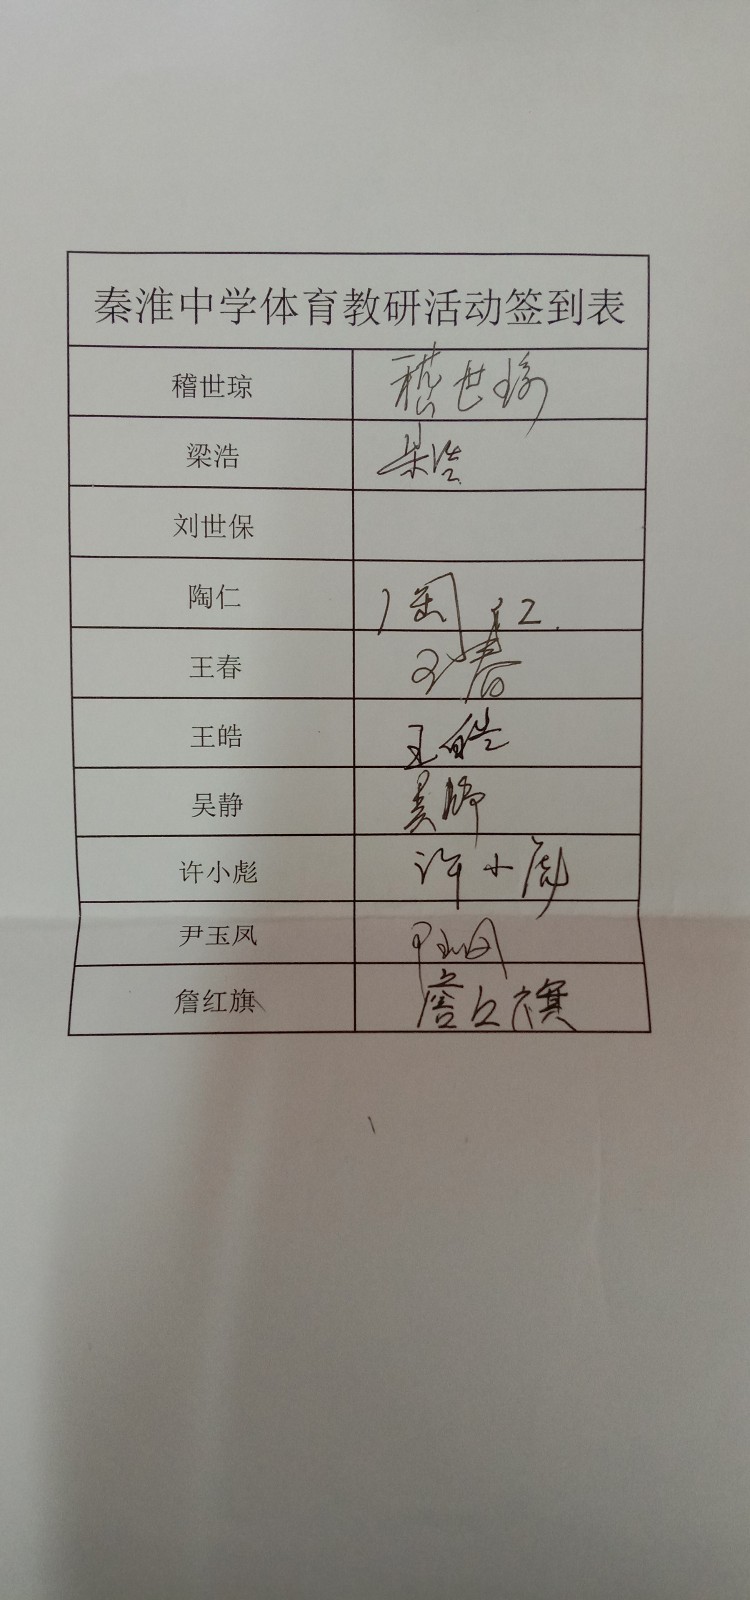 秦淮中学体育教研活动签到表
稽世琼 嵇世琼
梁浩 梁浩
刘世保
陶仁 陶仁
王春 王春
王皓 王皓
吴静 吴静
许小彪 许小彪
尹玉凤 尹玉凤
詹红旗 詹红旗